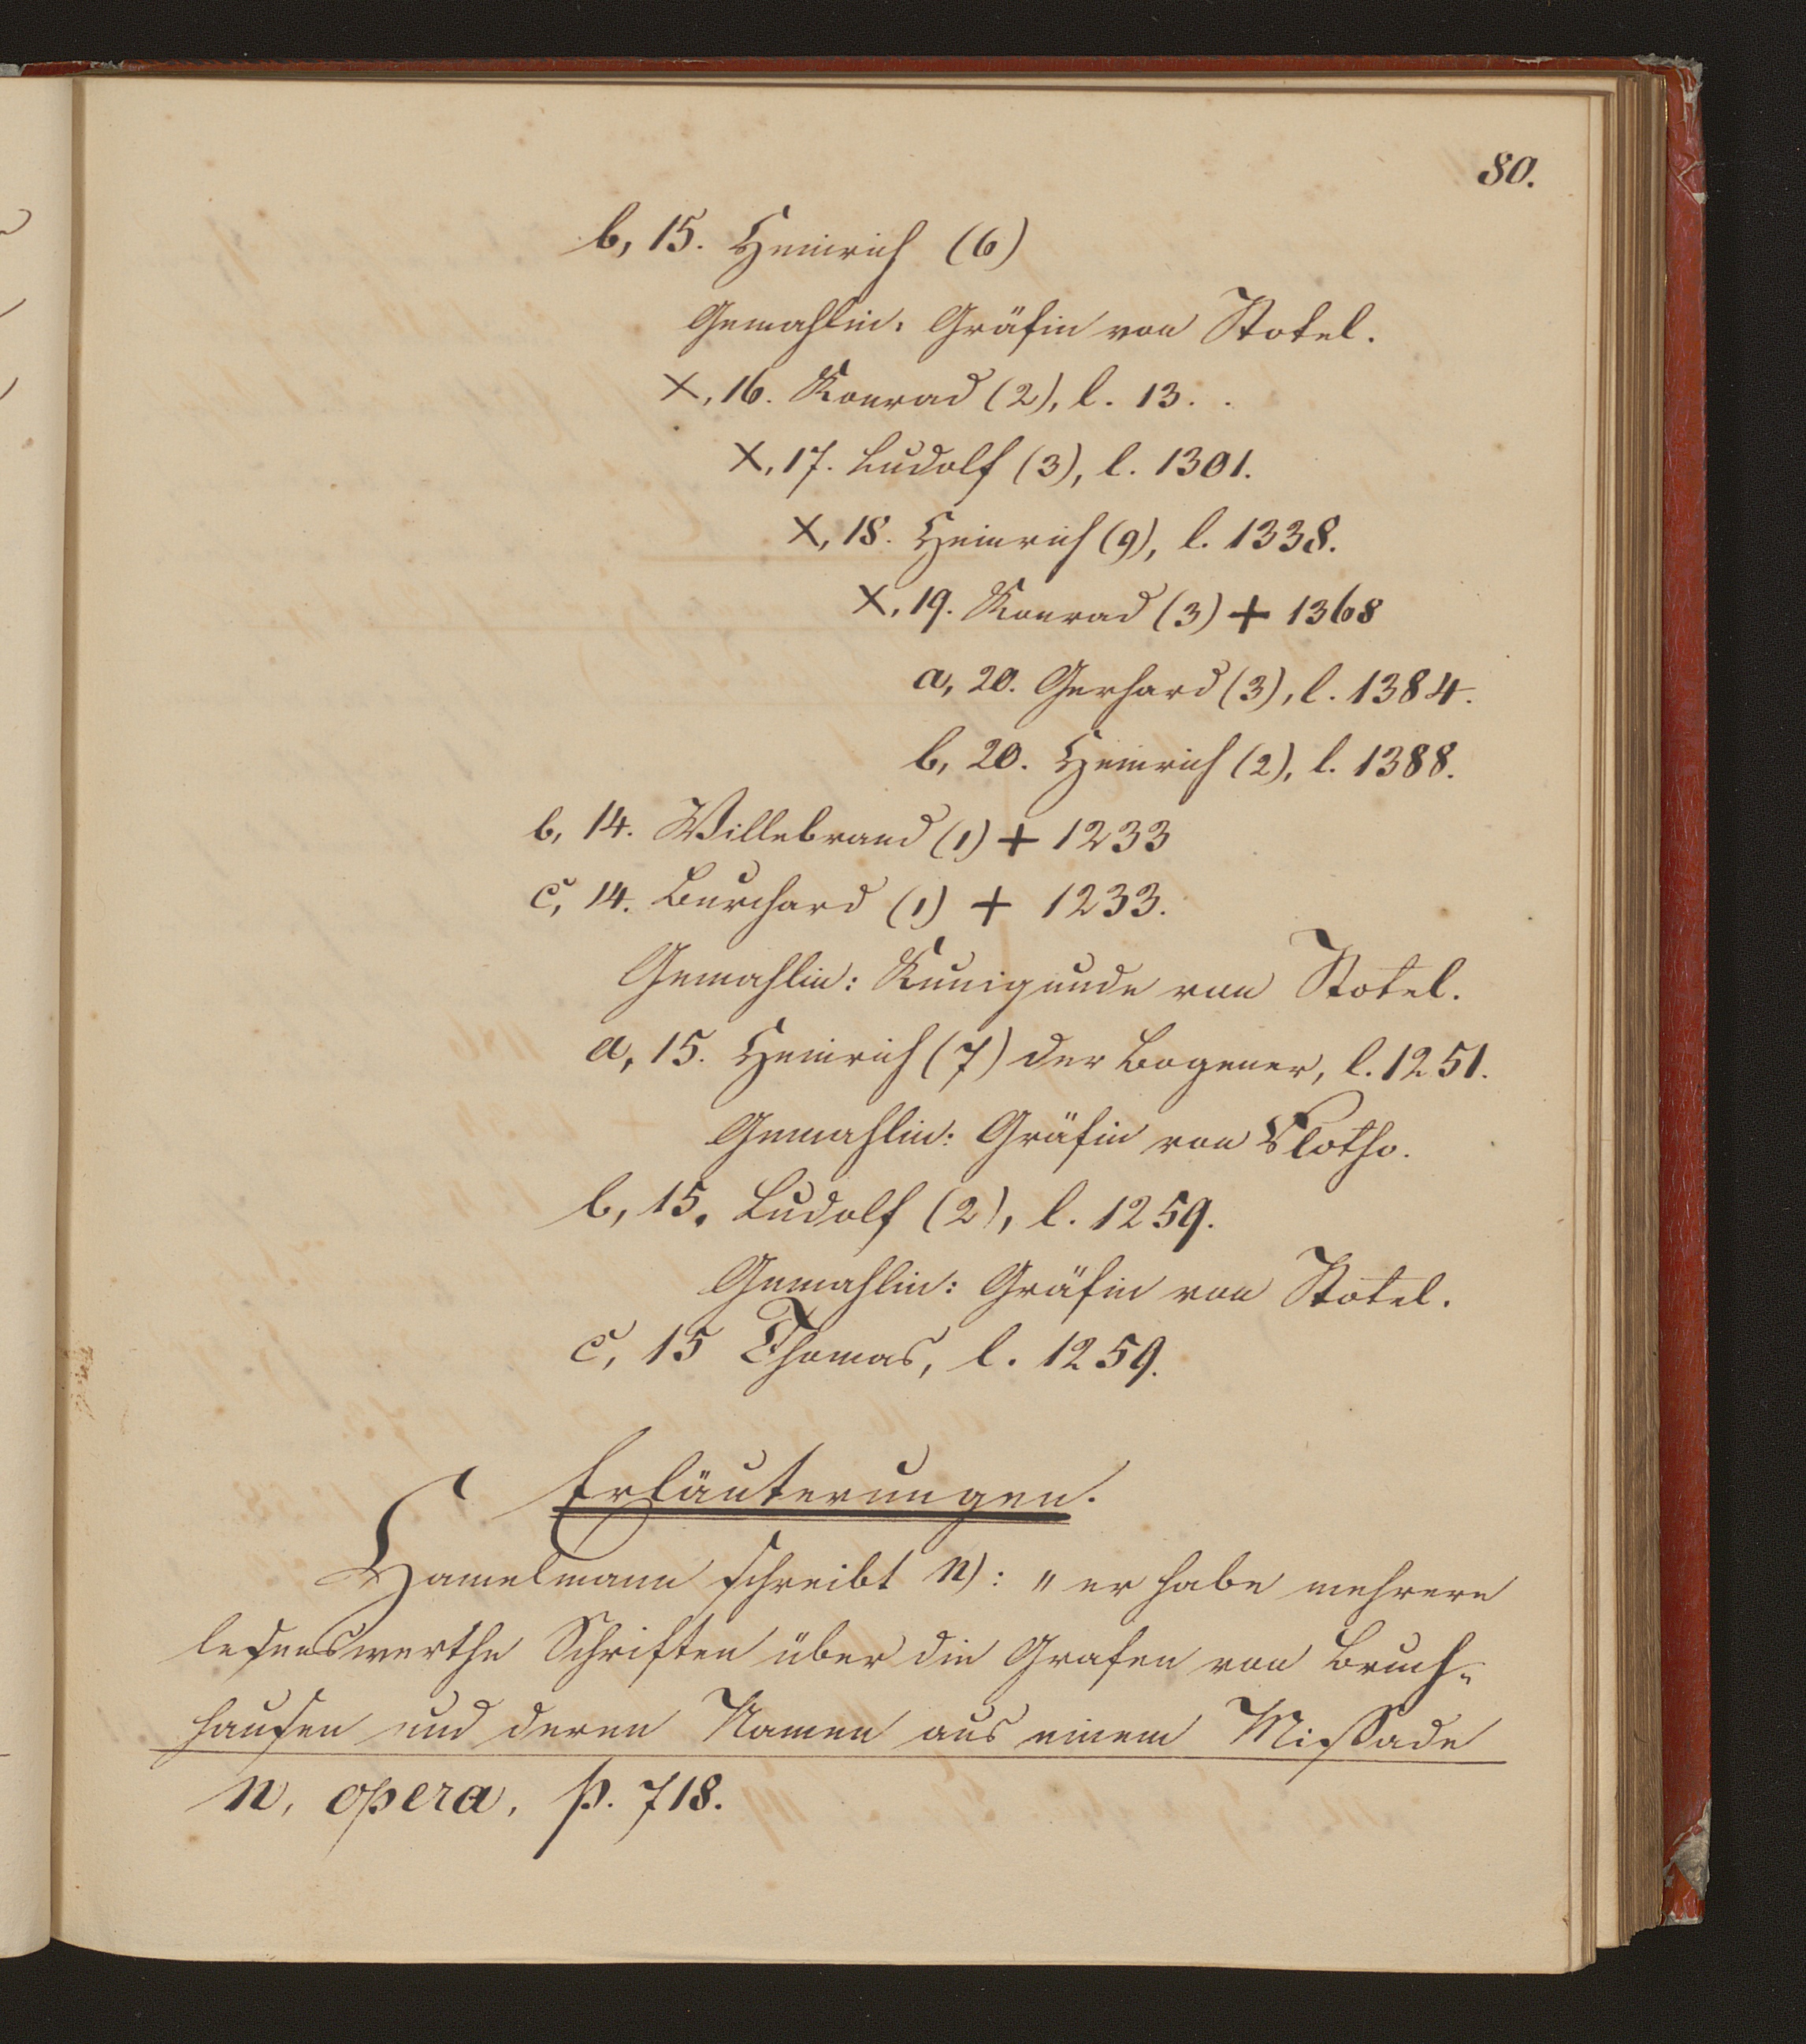 80.
b, 15. Heinrich (6)
Gemahlin: Gräfin von Stotel.
X, 16. Konrad (2), l. 13. .
X, 17. Ludolf (3), l. 1301.
X, 18. Heinrich (9), l. 1338.
X, 19. Konrad (3) + 1368
a, 20. Gerhard (3), l. 1384.
b, 20. Heinrich (2), l. 1388.
b, 14. Willebrand (1) + 1233
c, 14. Burchard (1) + 1233.
Gemahlin: Kunigunde von Stotel.
a, 15. Heinrich (7) der Bogener, l. 1251.
Gemahlin: Gräfin von Vlotho.
b, 15. Ludolf (2), l. 1259.
Gemahlin: Gräfin von Stotel.
c, 15 Thomas, l. 1259.
Erläuterungen.
Hamelmann schreibt n): „er habe mehrere
lesenswerthe Schriften über die Grafen von Bruch-
hausen und deren Namen aus einem Missade
n, opera, p. 718.